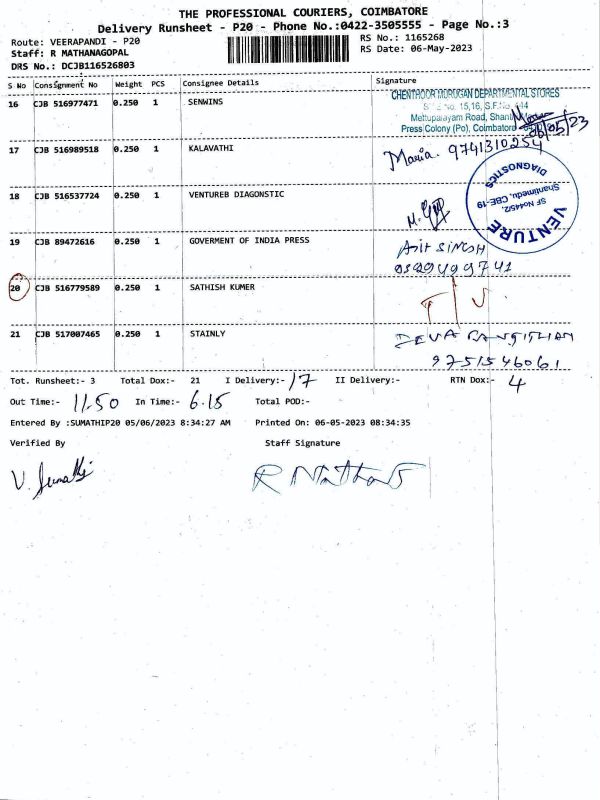 THE PROFESSIONAL COURIERS, COIMBATORE
Delivery Runsheet - P20 - Phone No.:0422-3505555 - Page No.:3
Route: VEERAPANDI - P20 RS No.: 1165268
Staff: R MATHANAGOPAL RS Date: 06-May-2023
DRS No.: DCJB116526803
S No Consignment No Weight PCS Consignee Details Signature
16 CJB 516977471 0.250 1 SENWINS
CHENTHOOR MURUGAN DEPARTMENTAL STORES
15,16, S.F.No. 444
Mettupalayam Road,
Press Colony (Po), Coimbatore
06/05/23
17 CJB 516989518 0.250 1 KALAVATHI Maria. 9741310254
18 CJB 516537724 0.250 1 VENTUREB DIAGONSTIC
VENTURE
DIAGNOSTICS
SF No445/2,
Shantimedu, CBE-19
19 CJB 89472616 0.250 1 GOVERMENT OF INDIA PRESS Asit SINGH
20 CJB 516779589 0.250 1 SATHISH KUMER
21 CJB 517007465 0.250 1 STAINLY
9751546061
Tot. Runsheet:- 3 Total Dox:- 21 I Delivery:- 17 II Delivery:- RTN Dox:- 4
Out Time:- 11.50 In Time:- 6.15 Total POD:-
Entered By :SUMATHIP20 05/06/2023 8:34:27 AM Printed On: 06-05-2023 08:34:35
Verified By Staff Signature